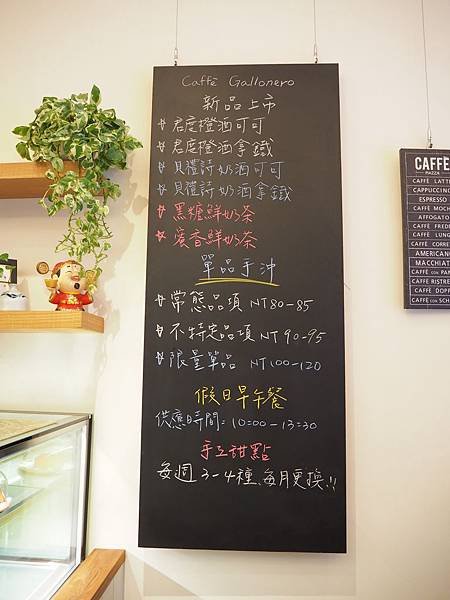 Caffè Gallonero
新品上市
☆君度橙酒可可
☆君度橙酒拿鐵
☆貝禮詩奶酒可可
☆貝禮詩奶酒拿鐵
★黑糖鮮奶茶
★蜜香鮮奶茶
單品手沖
☆常態品項 NT80-85
☆不特定品項 NT 90-95
☆限量單品 NT 100-120
假日早午餐
供應時間: 10:00-13:30
手工甜點
每週 3-4種、每月更換!!
CAFFÈ
PIAZZA
CAFFÈ LATT
CAPPUCCINO
ESPRESSO
CAFFÈ MOCH
AFFOGATO
CAFFÈ FRED
CAFFÈ LUNG
CAFFÈ CORRE
AMERICAN
MACCHIAT
CAFFÈ CON PAN
CAFFÈ RISTRE
CAFFÈ DOPP
CAFFÈ CON SCH